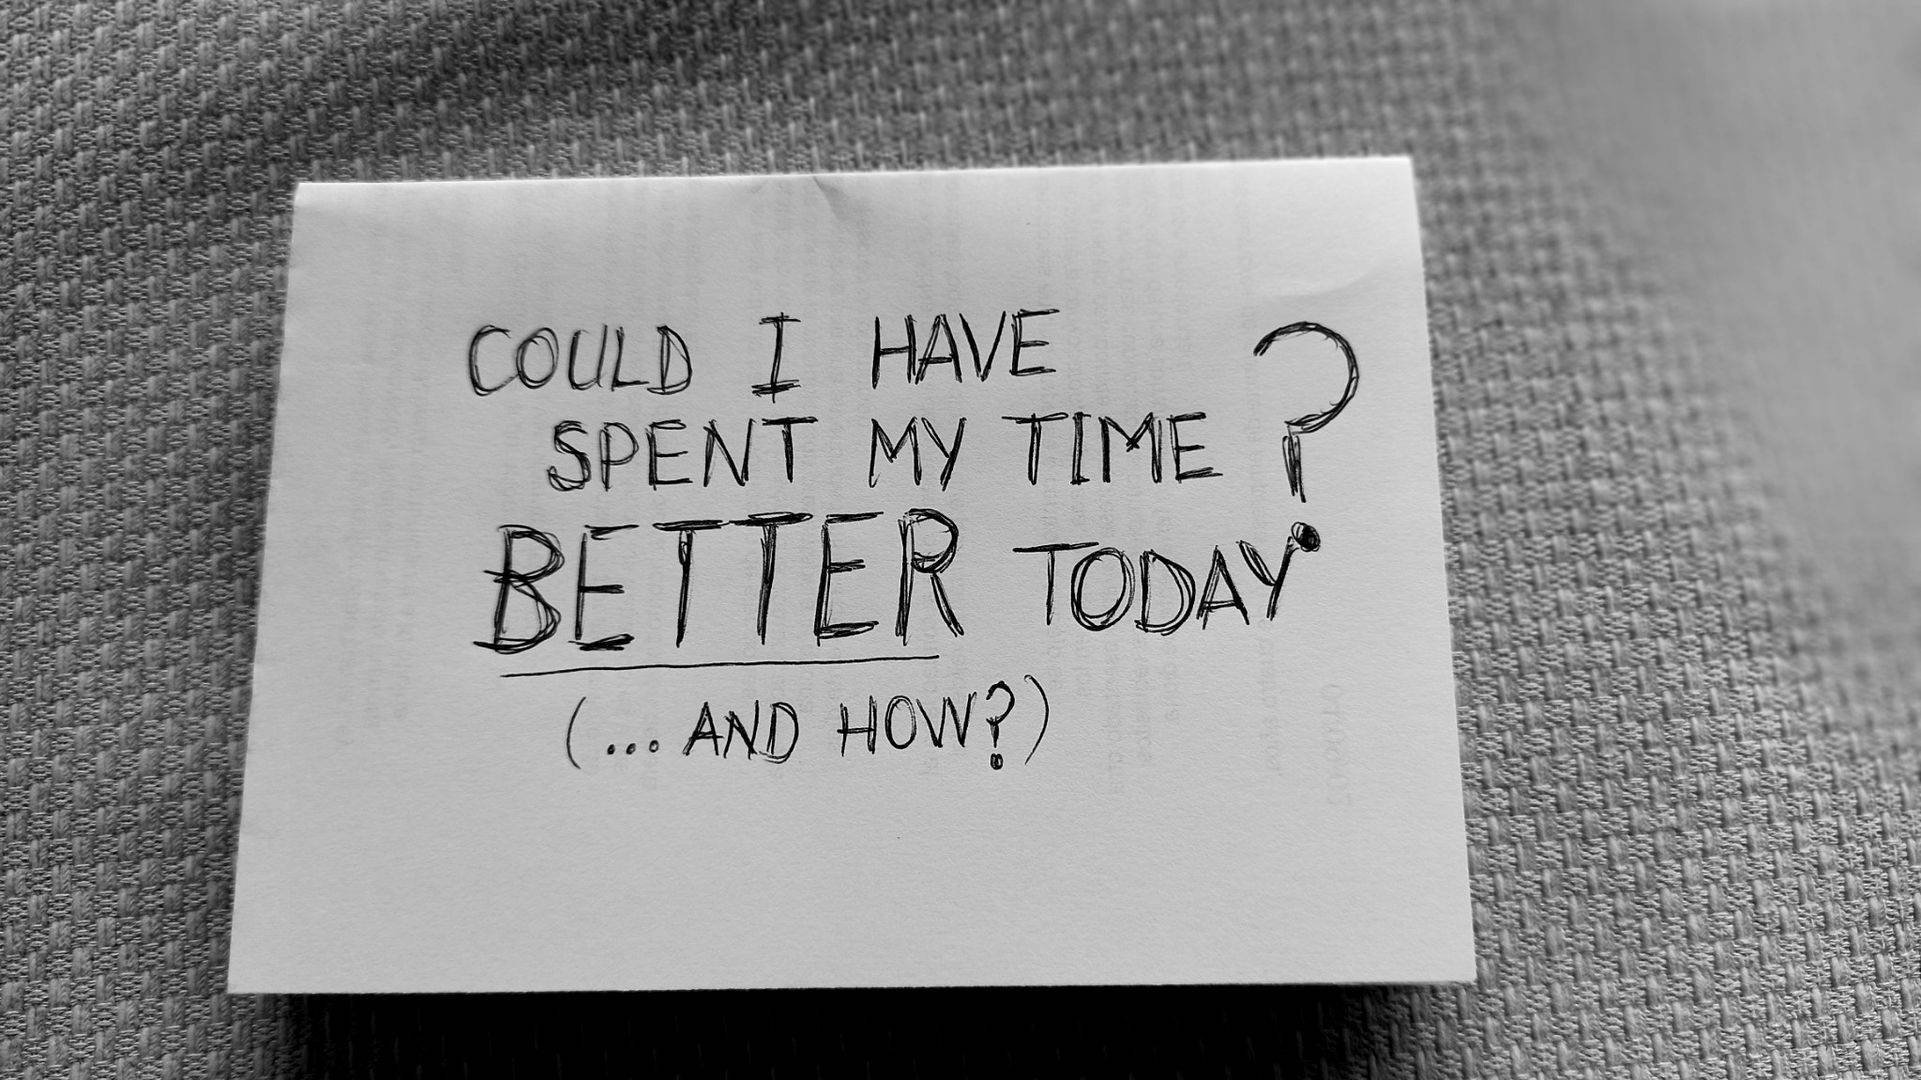 COULD I HAVE
SPENT MY TIME
BETTER TODAY?
(... AND HOW?)